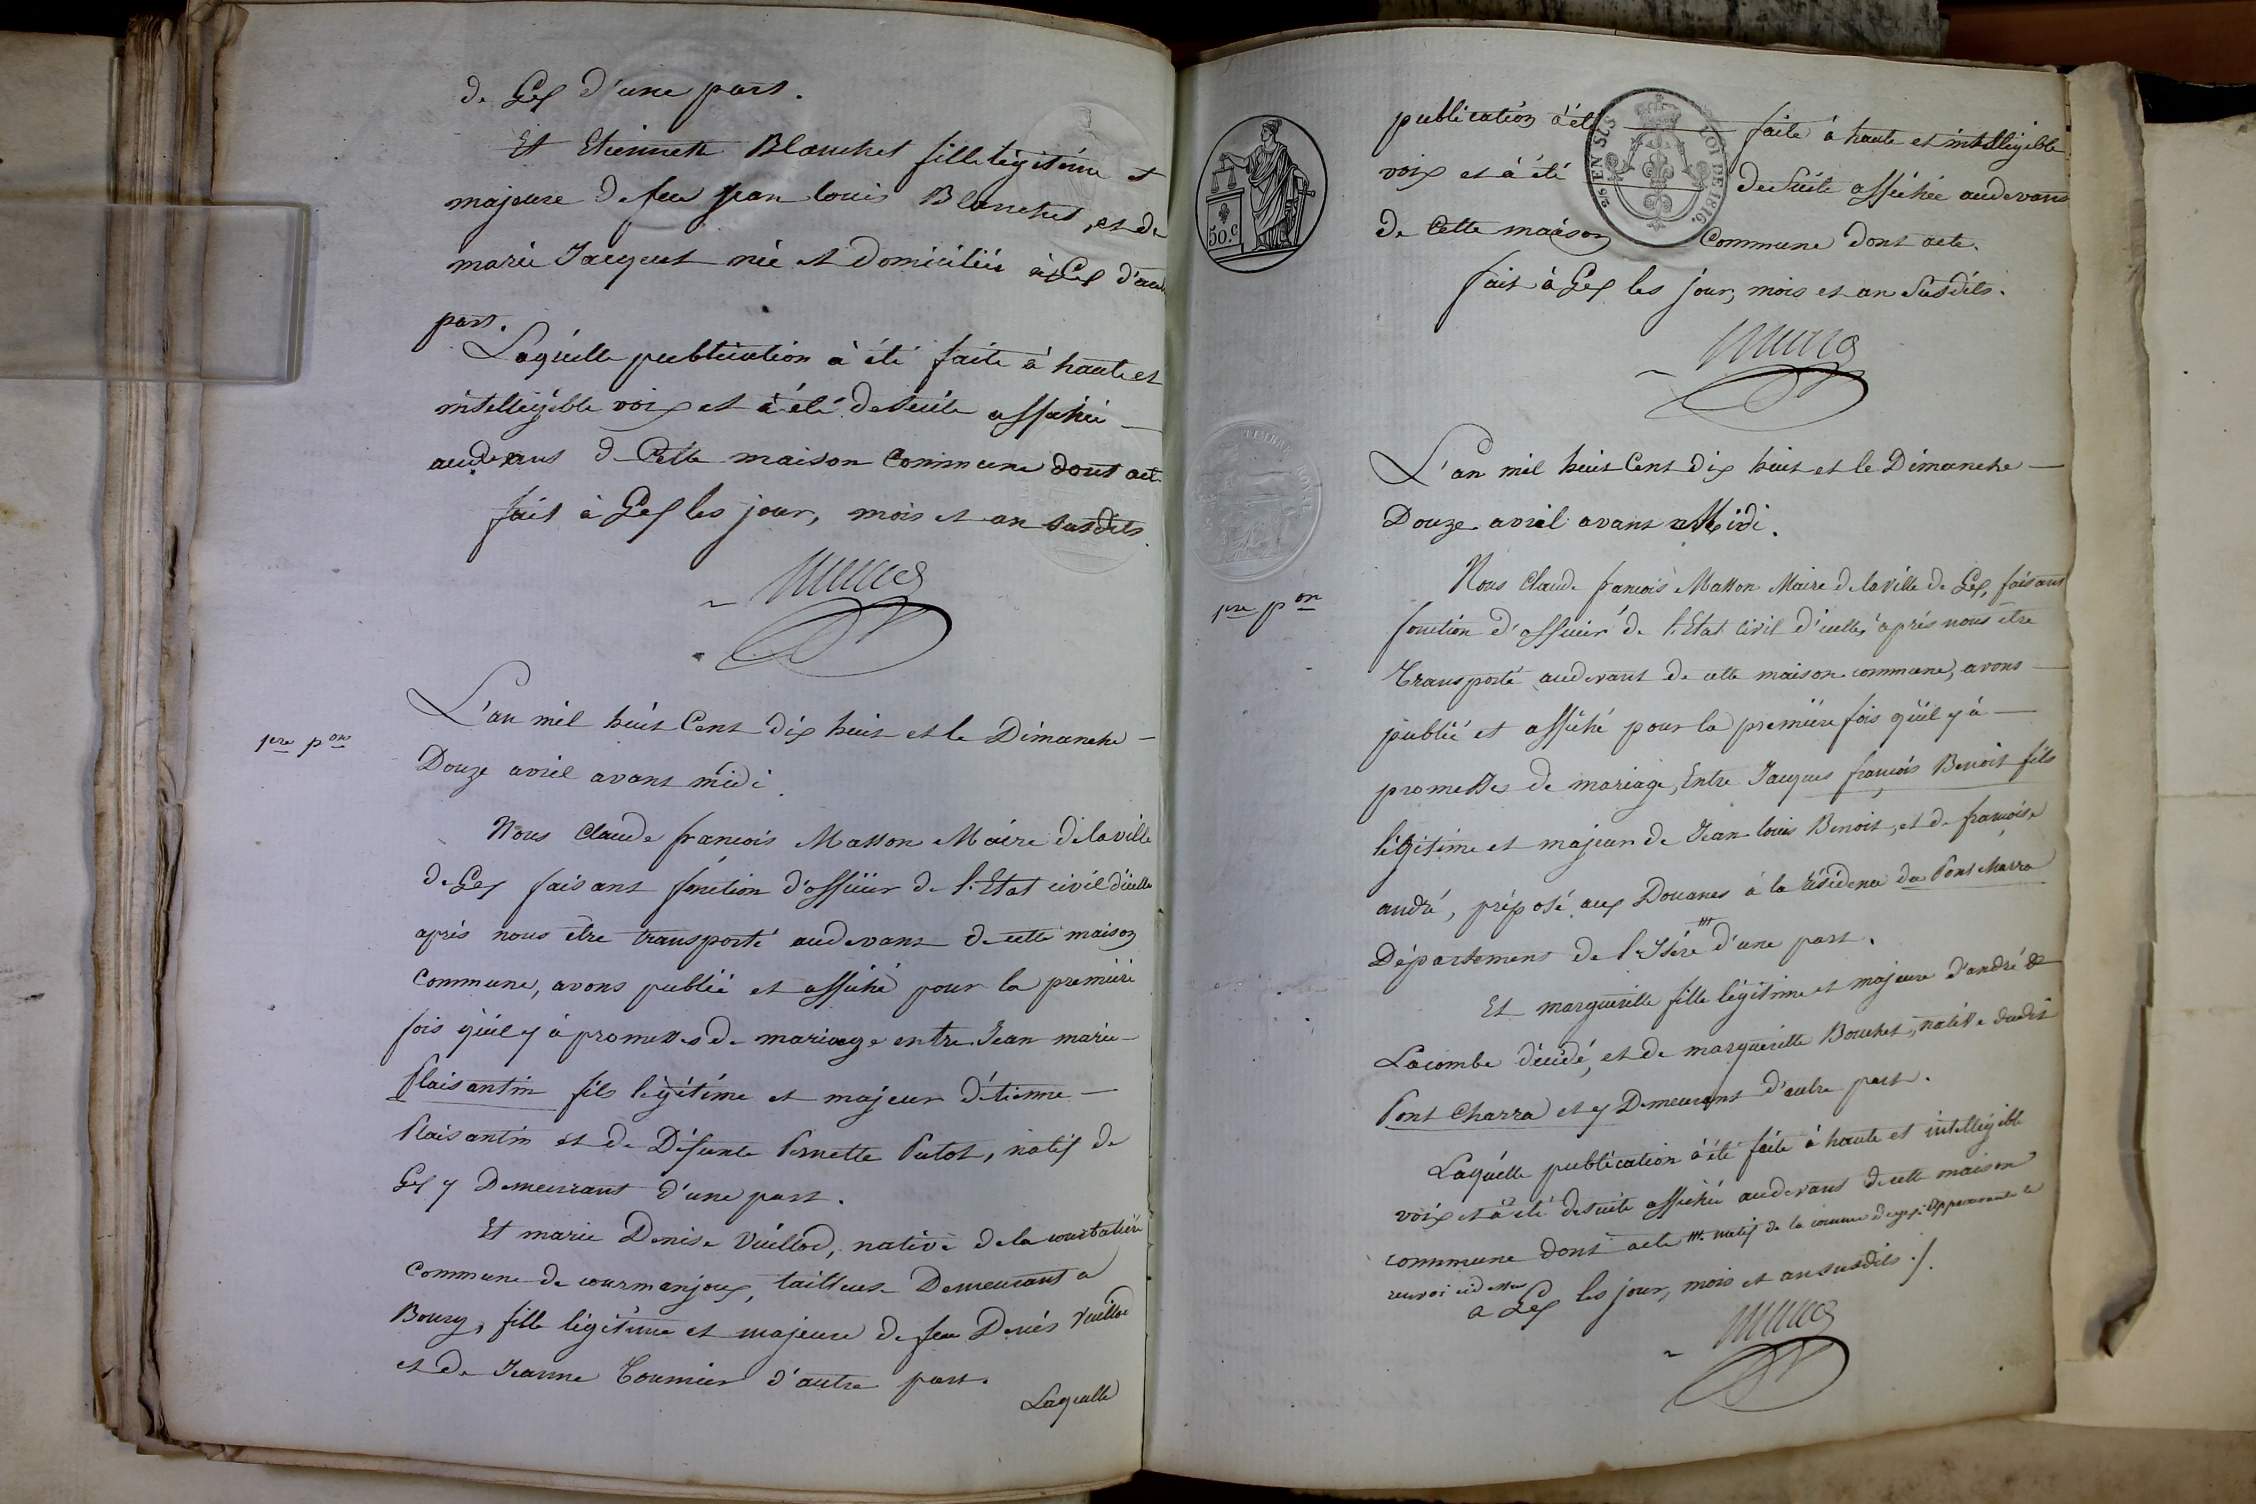 de Gex d'une part.
Et Etiennette Blanchet fille légitime et
majeure de feu Jean louis Blanchet, et de
marie Jacquet née et domiciliée à Gex d'autre
part.
Laquelle publication à été faite à haute et
intelligible voix et à été desuite affichée
audevant de Cette maison Commune dont acte
fait à Gex les jour, mois et an susdits.
1ere pon
L'an mil huit Cent dix huit et le Dimanche
Douze avril avant midi.
Nous Claude francois Masson Maire de la ville
de Gex faisant fonction d'officier de l'Etat civil d'icelle
après nous être transporté audevant de cette maison
Commune, avons publié et affiché pour la première
fois qu'il y à promesses de mariage entre Jean marie
Plaisantin fils légitime et majeur d'étienne
Plaisantin et de Défunte Pernette Putot, natif de
Gex y Demeurant d'une part.
Et marie Denise Vuillod, native de la courtatière
Commune de courmanjoux, tailleuse Demeurant a
Bourg, fille légitime et majeure de feu Denis Vuillod
et de Jeanne Tournier d'autre part.
Laquelle
50.c
publication à été faite à haute et intelligible
voix et à été desuite affichée audevant
de Cette maison Commune dont acte.
LOI DE 1816.
EN SUS
fait à Gex les jour, mois et an susdits.
TIMBRE ROYAL
L'an mil huit Cent dix huit et le Dimanche
Douze avril avant Midi.
1ere pon
Nous Claude francois Masson Maire de la ville de Gex, faisant
fonction d'officier de l'Etat civil d'icelle, après nous être
Transporté audevant de cette maison commune, avons
publié et affiché pour la première fois qu'il y à
promesses de mariage, Entre Jacques françois Benoit fils
légitime et majeur de Jean louis Benoit, et de françoise
andré, préposé aux Douanes à la résidence du Pont charra
Département de l'Isère d'une part.
Et marguerille fille légitime et majeure d'andré
Lacombe décédé, et de marguerille Bouchet, native dudit
Pont Charra et y Demeurant d'autre part.
Laquelle publication à été faite à haute et intelligible
voix et à été desuite affichée audevant de cette maison
commune dont acte natif de la commune de gex. Approuvant le
renvoi ci dessus
a Gex les jour, mois et an susdits ./.